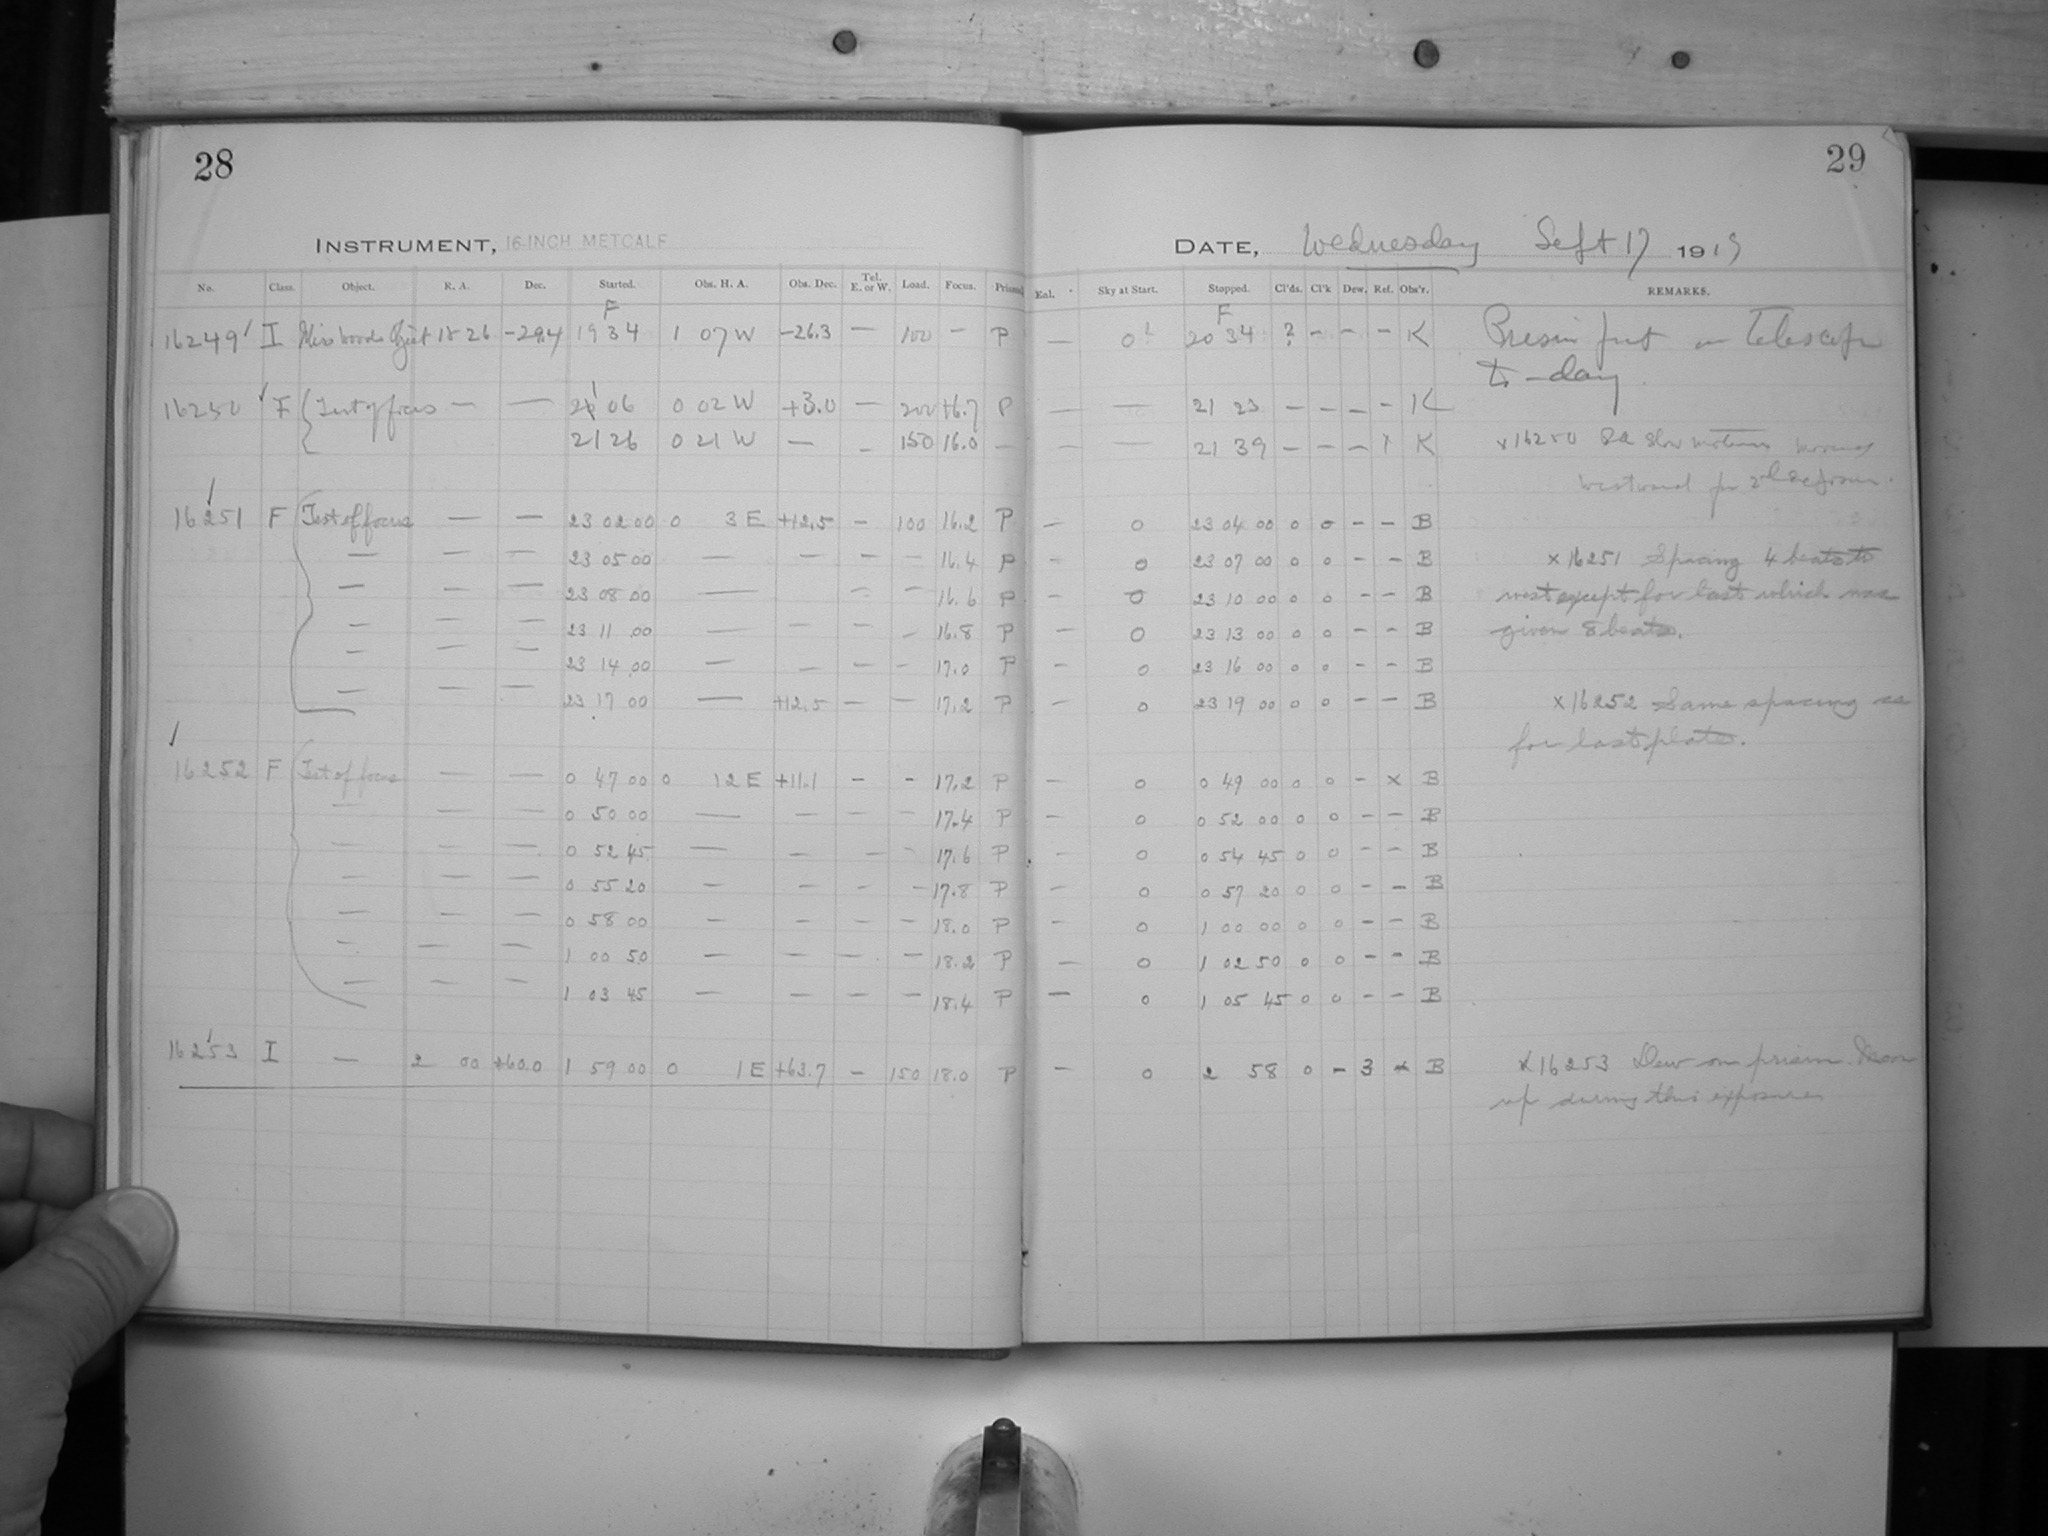 28
29
INSTRUMENT, 16-INCH METCALF
DATE, Wednesday Sept 17 1919
No. Class. Object. R. A. Dec. Started. Obs. H. A. Obs. Dec. Tel. E. or W. Load. Focus. Prism Eol. Sky at Start. Stopped. Cl'ds. Cl'k Dew. Ref. Obs'r. REMARKS.
F F
16249 I Miss Woods Object 18 26 -29.4 19 34 1 07 W -26.3 — 100 - P — 0 20 34 ? - - - K Prism put on Telescope
to-day
16250 F Test of focus — — 21 06 0 02 W +3.0 — 200 +6.7 P — — 21 23 - - - - K
21 26 0 21 W — - 150 16.0 — — — 21 39 - - - x K x16250 RA slow motion moved
westward for exposure.
16251 F Test of focus — — 23 02 00 0 3 E +12.5 - 100 16.2 P - 0 23 04 00 0 0 - - B
— — — 23 05 00 — — - - 16.4 P - 0 23 07 00 0 0 - - B x16251 Spacing 4 beats to
— — — 23 08 00 — - - 16.6 P - 0 23 10 00 0 0 - - B west except for last which was
— — — 23 11 00 — - - - 16.8 P - 0 23 13 00 0 0 - - B given 8 beats.
— — — 23 14 00 — - - - 17.0 P - 0 23 16 00 0 0 - - B
— — — 23 17 00 — +12.5 - - 17.2 P - 0 23 19 00 0 0 - - B x16252 Same spacing as
for last plate.
16252 F Test of focus — — 0 47 00 0 12 E +11.1 - - 17.2 P - 0 0 49 00 0 0 - x B
— — — 0 50 00 — — - - 17.4 P - 0 0 52 00 0 0 - - B
— — — 0 52 45 — — - - 17.6 P - 0 0 54 45 0 0 - - B
— — — 0 55 20 — — - - 17.8 P - 0 0 57 20 0 0 - - B
— — — 0 58 00 — — - - 18.0 P - 0 1 00 00 0 0 - - B
— — — 1 00 50 — — - - 18.2 P — 0 1 02 50 0 0 - - B
— — — 1 03 45 — — - - 18.4 P — 0 1 05 45 0 0 - - B
16253 I — 2 00 +60.0 1 59 00 0 1 E +63.7 - 150 18.0 P - 0 2 58 0 - 3 x B x16253 Dew on prism. Moon
up during this exposure